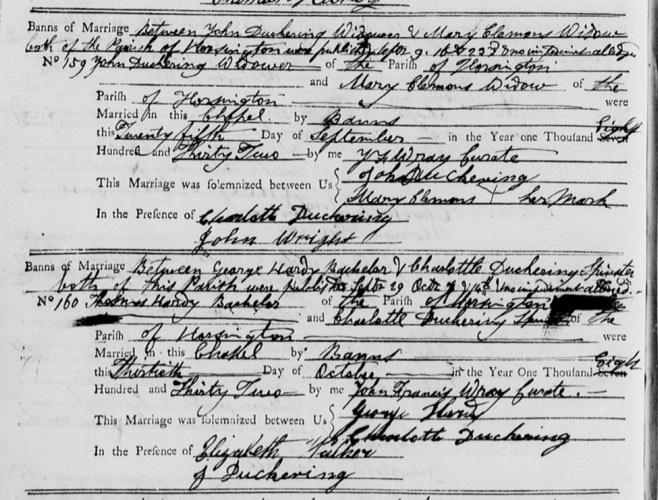 Banns of Marriage Between John Duckering Widower & Mary Clemons Widow
both of the Parish of Horsington were publish Septr 9. 16 & 23d & no impediment alledged
No 159 John Duckering Widower of the Parish of Horsington
and Mary Clemons Widow of the
Parish of Horsington were
Married in this Chapel by Banns
this Twenty fifth Day of September in the Year one Thousand Eight
Hundred and Thirty Two by me Wray Curate
This Marriage was solemnized between Us John Duckering
Mary Clemons X her Mark
In the Presence of Charlotte Duckering
John Wright
Banns of Marriage Between George Hardy Bachelor & Charlottle Duckering Spinster
both of this Parish were publish
No 160 Thomas Hardy Bachelor of the Parish of Horsington
and Charlotte Duckering Spinr of the
Parish of Horsington were
Married in this Chapel by Banns
this Thirtieth Day of October in the Year one Thousand Eight
Hundred and Thirty Two by me John Francis Wray Curate.
This Marriage was solemnized between Us George Hardy
Charlotte Duckering
In the Presence of Elizabeth
J Duckering